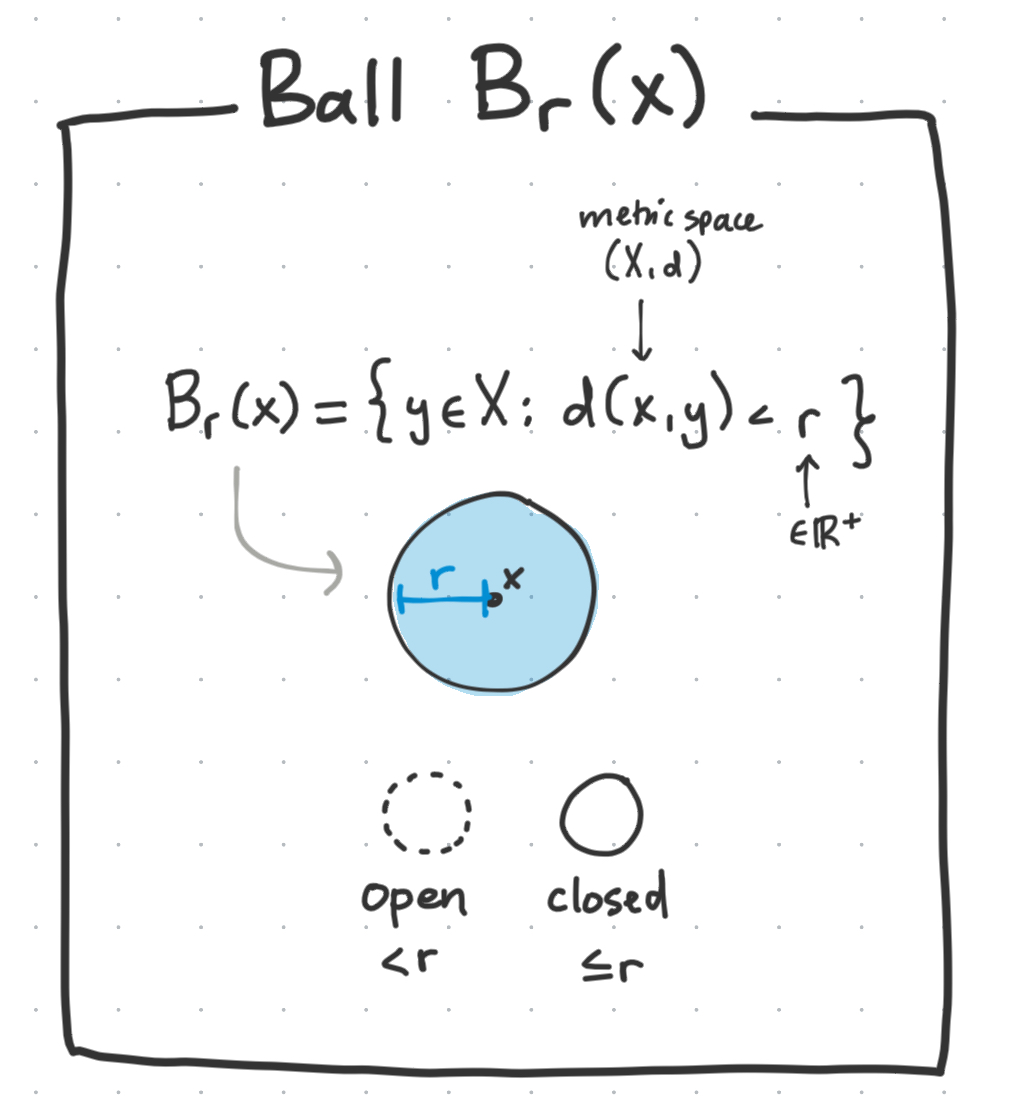 Ball Br(x)
metric space
(X,d)
Br(x) = {y∈X: d(x,y) < r }
∈ℝ⁺
r x
open closed
<r ≤r